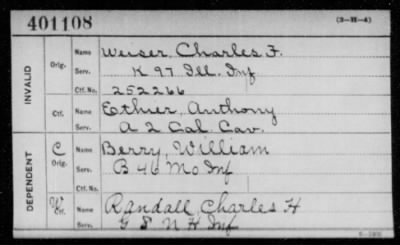 401108 (3-H-4)
INVALID
Orig. Name Weiser, Charles F.
Serv. K 97 Ill. Inf
Ctf. No. 252266
Ctf. Name Ethier, Anthony
Serv. A 2 Cal. Cav.
DEPENDENT
C Orig. Name Berry, William
Serv. B 46 Mo Inf
Ctf. No.
W Ctf. Name Randall Charles H
Serv. G 8 N H Inf